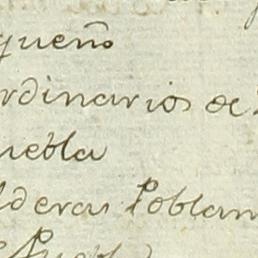 queño
rdinarios de
uebla
lderas Poblan
Puebl